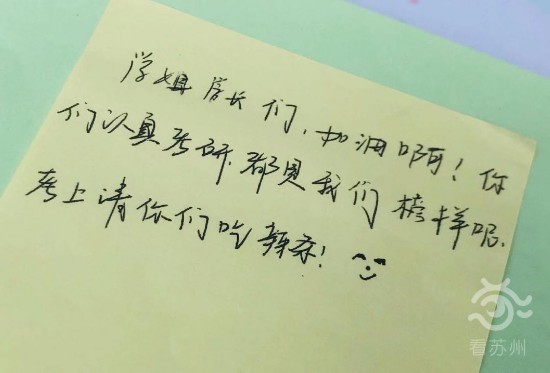 学姐学长们,加油啊!你
们认真考研.都是我们榜样呢.
考上请你们吃辣条!
看苏州